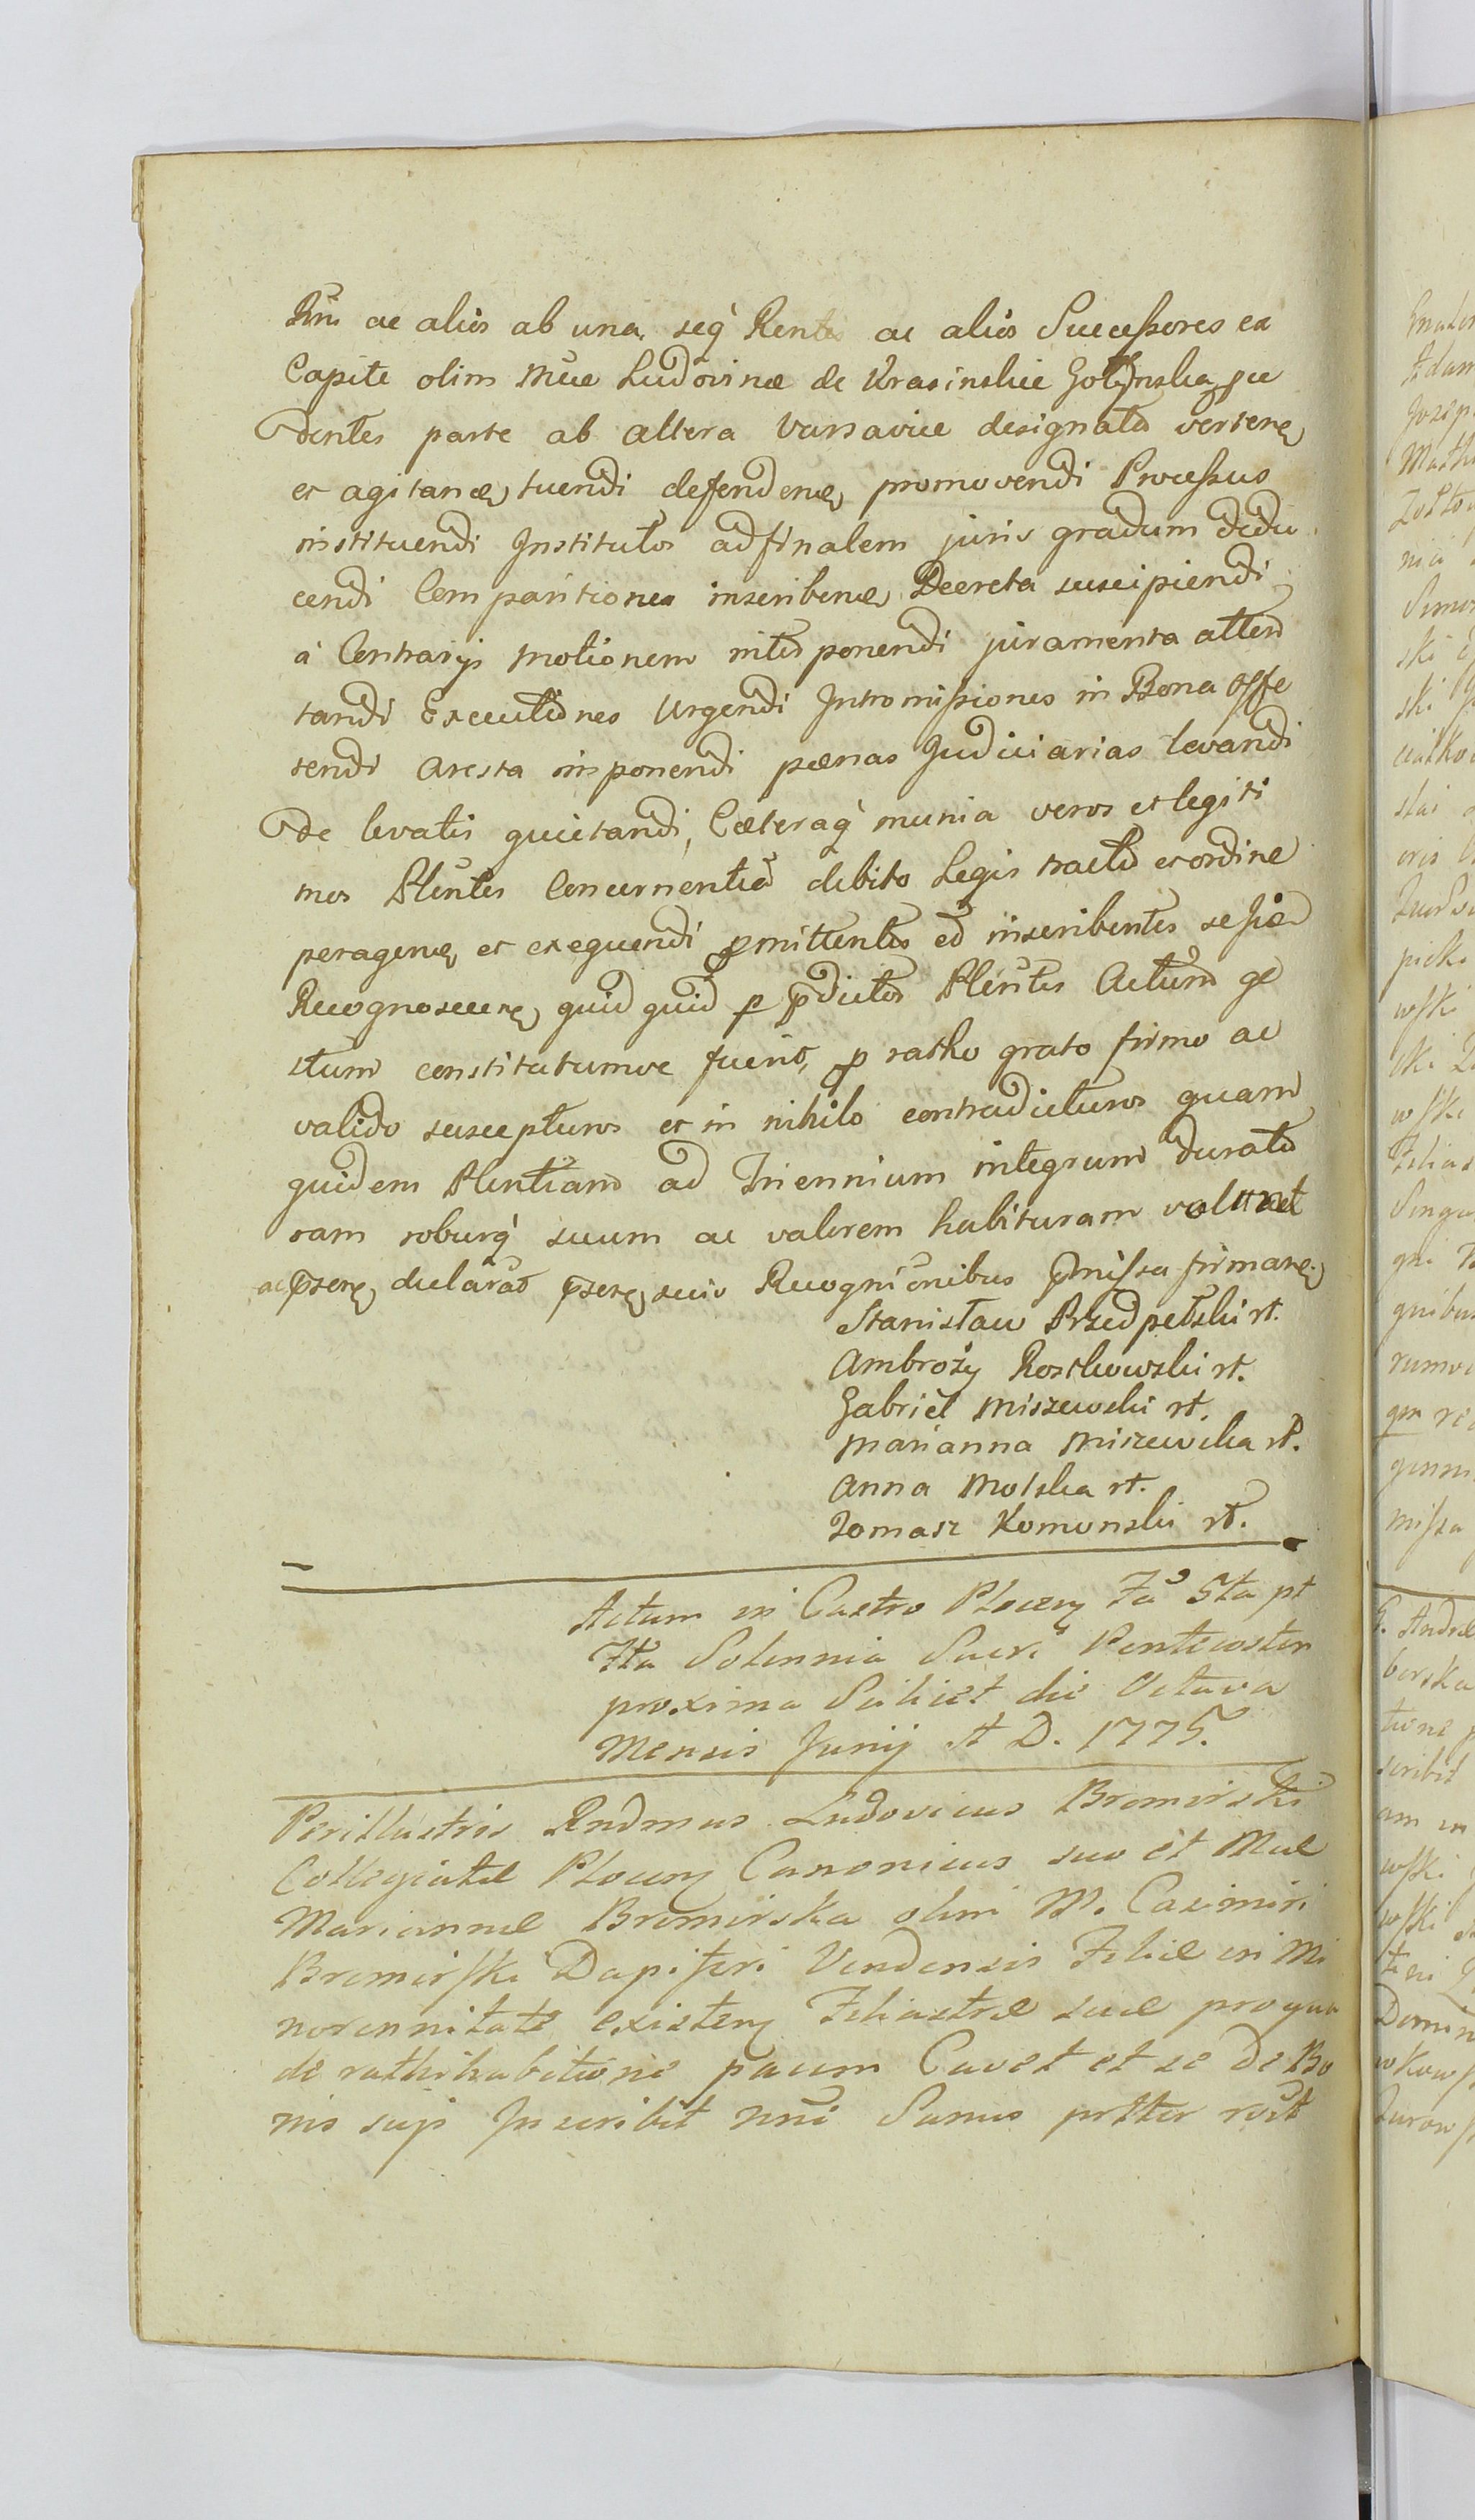 ac alios ab una, seq Rentes ac alios Successores ex
Capite olim Mcae Ludovinae de Krasinskie Gołynska pce
dentes parte ab altera Varsaviae designato verten
et agitan tuendi defenden promovendi Processus
instituendi Institutos ad finalem juris gradum dedu
cendi Comparitiones inseriben Decreta suscipiendi
a Contrarijs motionem interponendi juramenta atten
tandi Executiones Urgendi Intromissiones in Bona Offe
rendi Aresta imponendi paenas Judiciarias levandi
de levatis quietandi, Caeteraq munia veros et legiti
mos Plentes Concernentia debito Legis tractu et ordine
peragen et exequendi pmittentes et inscribentes se
Recognoscen quid quid p pdictos Plentes Actum ge
stum constitutumve fuerit, p ratho grato firmo ac
valido suscepturos et in nihilo contradicturos quam
quidem Plentiam ad Triennium integrum durato
ram roburq suum ac valorem habituram
ac psen declarat psen suis Recognicnibus pmissa firman
Stanisław Przedpełski rt.
Ambroży Rostkowski rt.
Gabriel Miszewski rt.
Marianna Miszewska rt.
Anna Molska rt.
Tomasz Komonski rt.
Actum in Castro Plocen Fa 5ta pt
Fta Solennia Sacri Pentecosten
proxima Scilicet die Octava
Mensis Junij A D. 1775.
Perillustris Rndmus Ludovicus Bromirski
Collegiatae Plocen Canonicus suo et Mae
Mariannae Bromirska olim M. Casimiri
Bromirski Dapiferi Vendensis Filiae in Mi
norennitate existen Filiastrae suae pro qua
de rathihabitione pacum Cavet et se de Bo
nis suis Inscribit nni Sanus ptter rcst